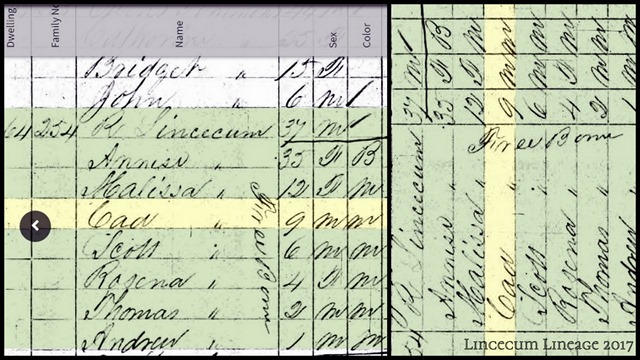 Dwelling Family No Name Sex Color
Bridget " 15 F
John " 6 m /
64 254 R Lincecum 37 m /
Annise " 35 F B
Malissa " 12 F m
Cad " 9 m m
Scott " 6 m m
Rosena " 4 F m
Thomas " 2 m m
Andrew " 1 m m
Free Born
37 m /
35 F B
12 F m
9 m m
6 m m
4 F m
2 m m
1
Free Born
R Lincecum
Annise "
Malissa "
Cad "
Scott "
Rosena "
Thomas "
Andrew
Lincecum Lineage 2017